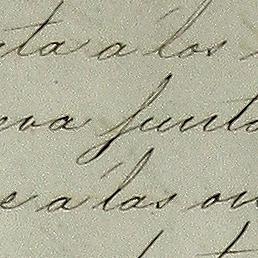 ta á los
eva junta
e a las on